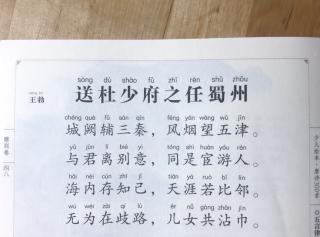 sòng dù shào fǔ zhī rèn shǔ zhōu
送杜少府之任蜀州
王勃
chéng què fǔ sān qín
fēng yān wàng wǔ jīn
城阙辅三秦，风烟望五津。
yǔ jūn lí bié yì
tóng shì huàn yóu rén
与君离别意，同是宦游人。
hǎi nèi cún zhī jǐ
tiān yá ruò bǐ lín
海内存知己，天涯若比邻。
wú wéi zài qí lù
ér nǚ gòng zhān jīn
无为在歧路，儿女共沾巾。